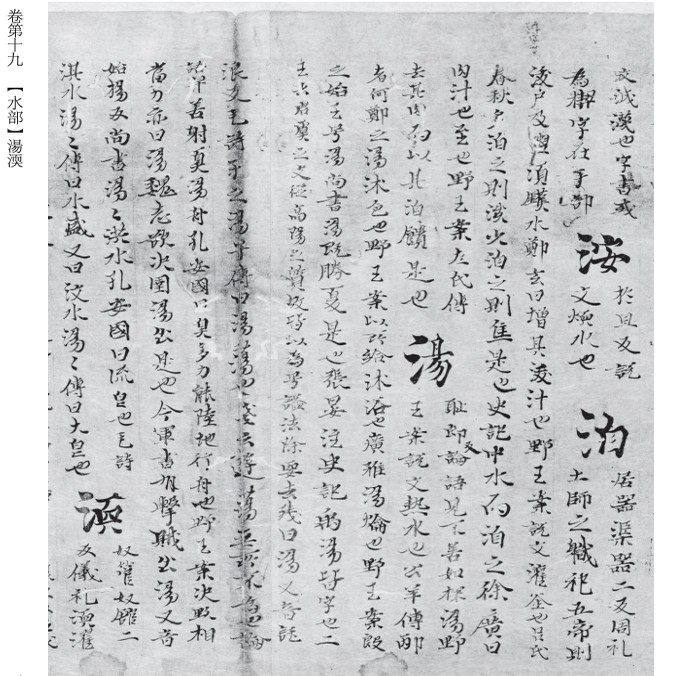 卷第十九　【水部】湯渜
文也字書或
為字在手部
洝
於旦反說
文煗水也
洎
居器渠器二反周礼
士師之軄祀五帝則
洎鑊水鄭玄曰增其汁也野王案説文灌釜也呂氏
春秋多洎之則淡少洎之則焦是也史記中水而洎之徐廣曰
肉汁也至也野王案左氏傳
去其肉而以其洎饋是也
湯
耻郎反論語見不善如探湯野
王案說文熱水也公羊傳邴
者何鄭之湯沐邑也野王案以給沐浴也廣雅湯爚也野王案殷
之始王号湯尚書湯既勝夏是也張晏注史記禹湯皆字也二
王去唐虞之文從高陽之質故皆以為号謚法除虐去殘曰湯又音託
浪反毛詩子之湯兮傳曰湯蕩也遊蕩
若射奡湯舟孔安國曰奡多力能陸地行舟也野王案决戰相
當力亦曰湯魏志欲决圍湯出是也今軍書有擊賊出湯又音
始楊反尚書湯〻洪水孔安國曰流皃也毛詩
淇水湯〻傳曰水盛又曰汶水湯〻傳曰大皃也
渜
奴管奴館二
反儀礼渜濯